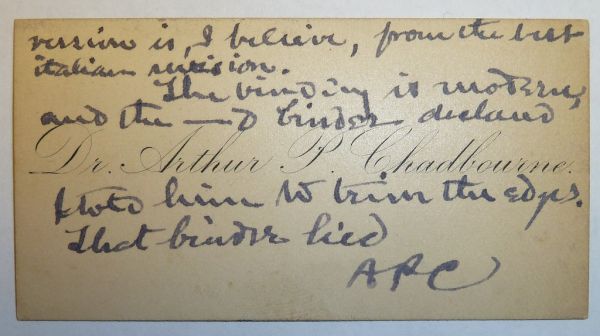 version is, I believe, from the best
italian revision.
The binding is modern,
and the —d binder declared
Dr. Arthur P. Chadbourne.
I told him to trim the edges.
That binder lied
APC